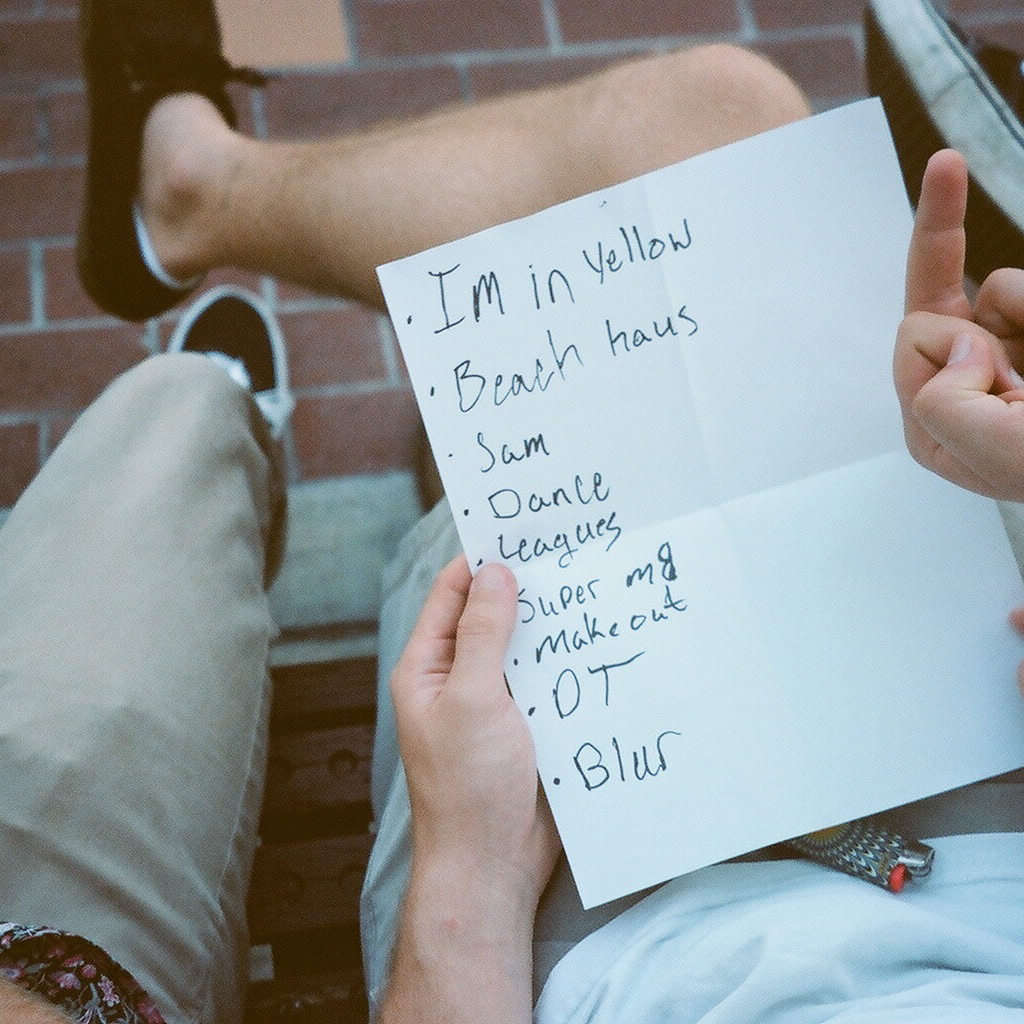 · I'm in Yellow
· Beach haus
· Sam
· Dance
· Leagues
Super m8
· Makeout
· DT
· Blur